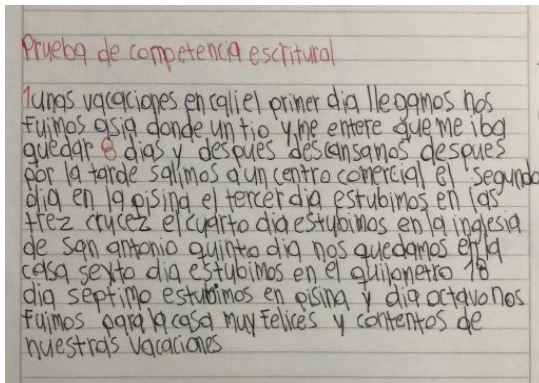 Prueba de competencia escritural
1 unas vacaciones en cali el primer dia llegamos nos
fuimos asia donde un tio y me entere que me iba
quedar 8 dias y despues descansamos despues
por la tarde salimos a un centro comercial el segundo
dia en la pisina el tercer dia estubimos en las
trez crucez el cuarto dia estubimos en la inglesia
de san antonio quinto dia nos quedamos en la
casa sexto dia estubimos en el quilometro 18
dia septimo estubimos en pisina y dia octavo nos
fuimos para la casa muy felices y contentos de
nuestras vacaciones